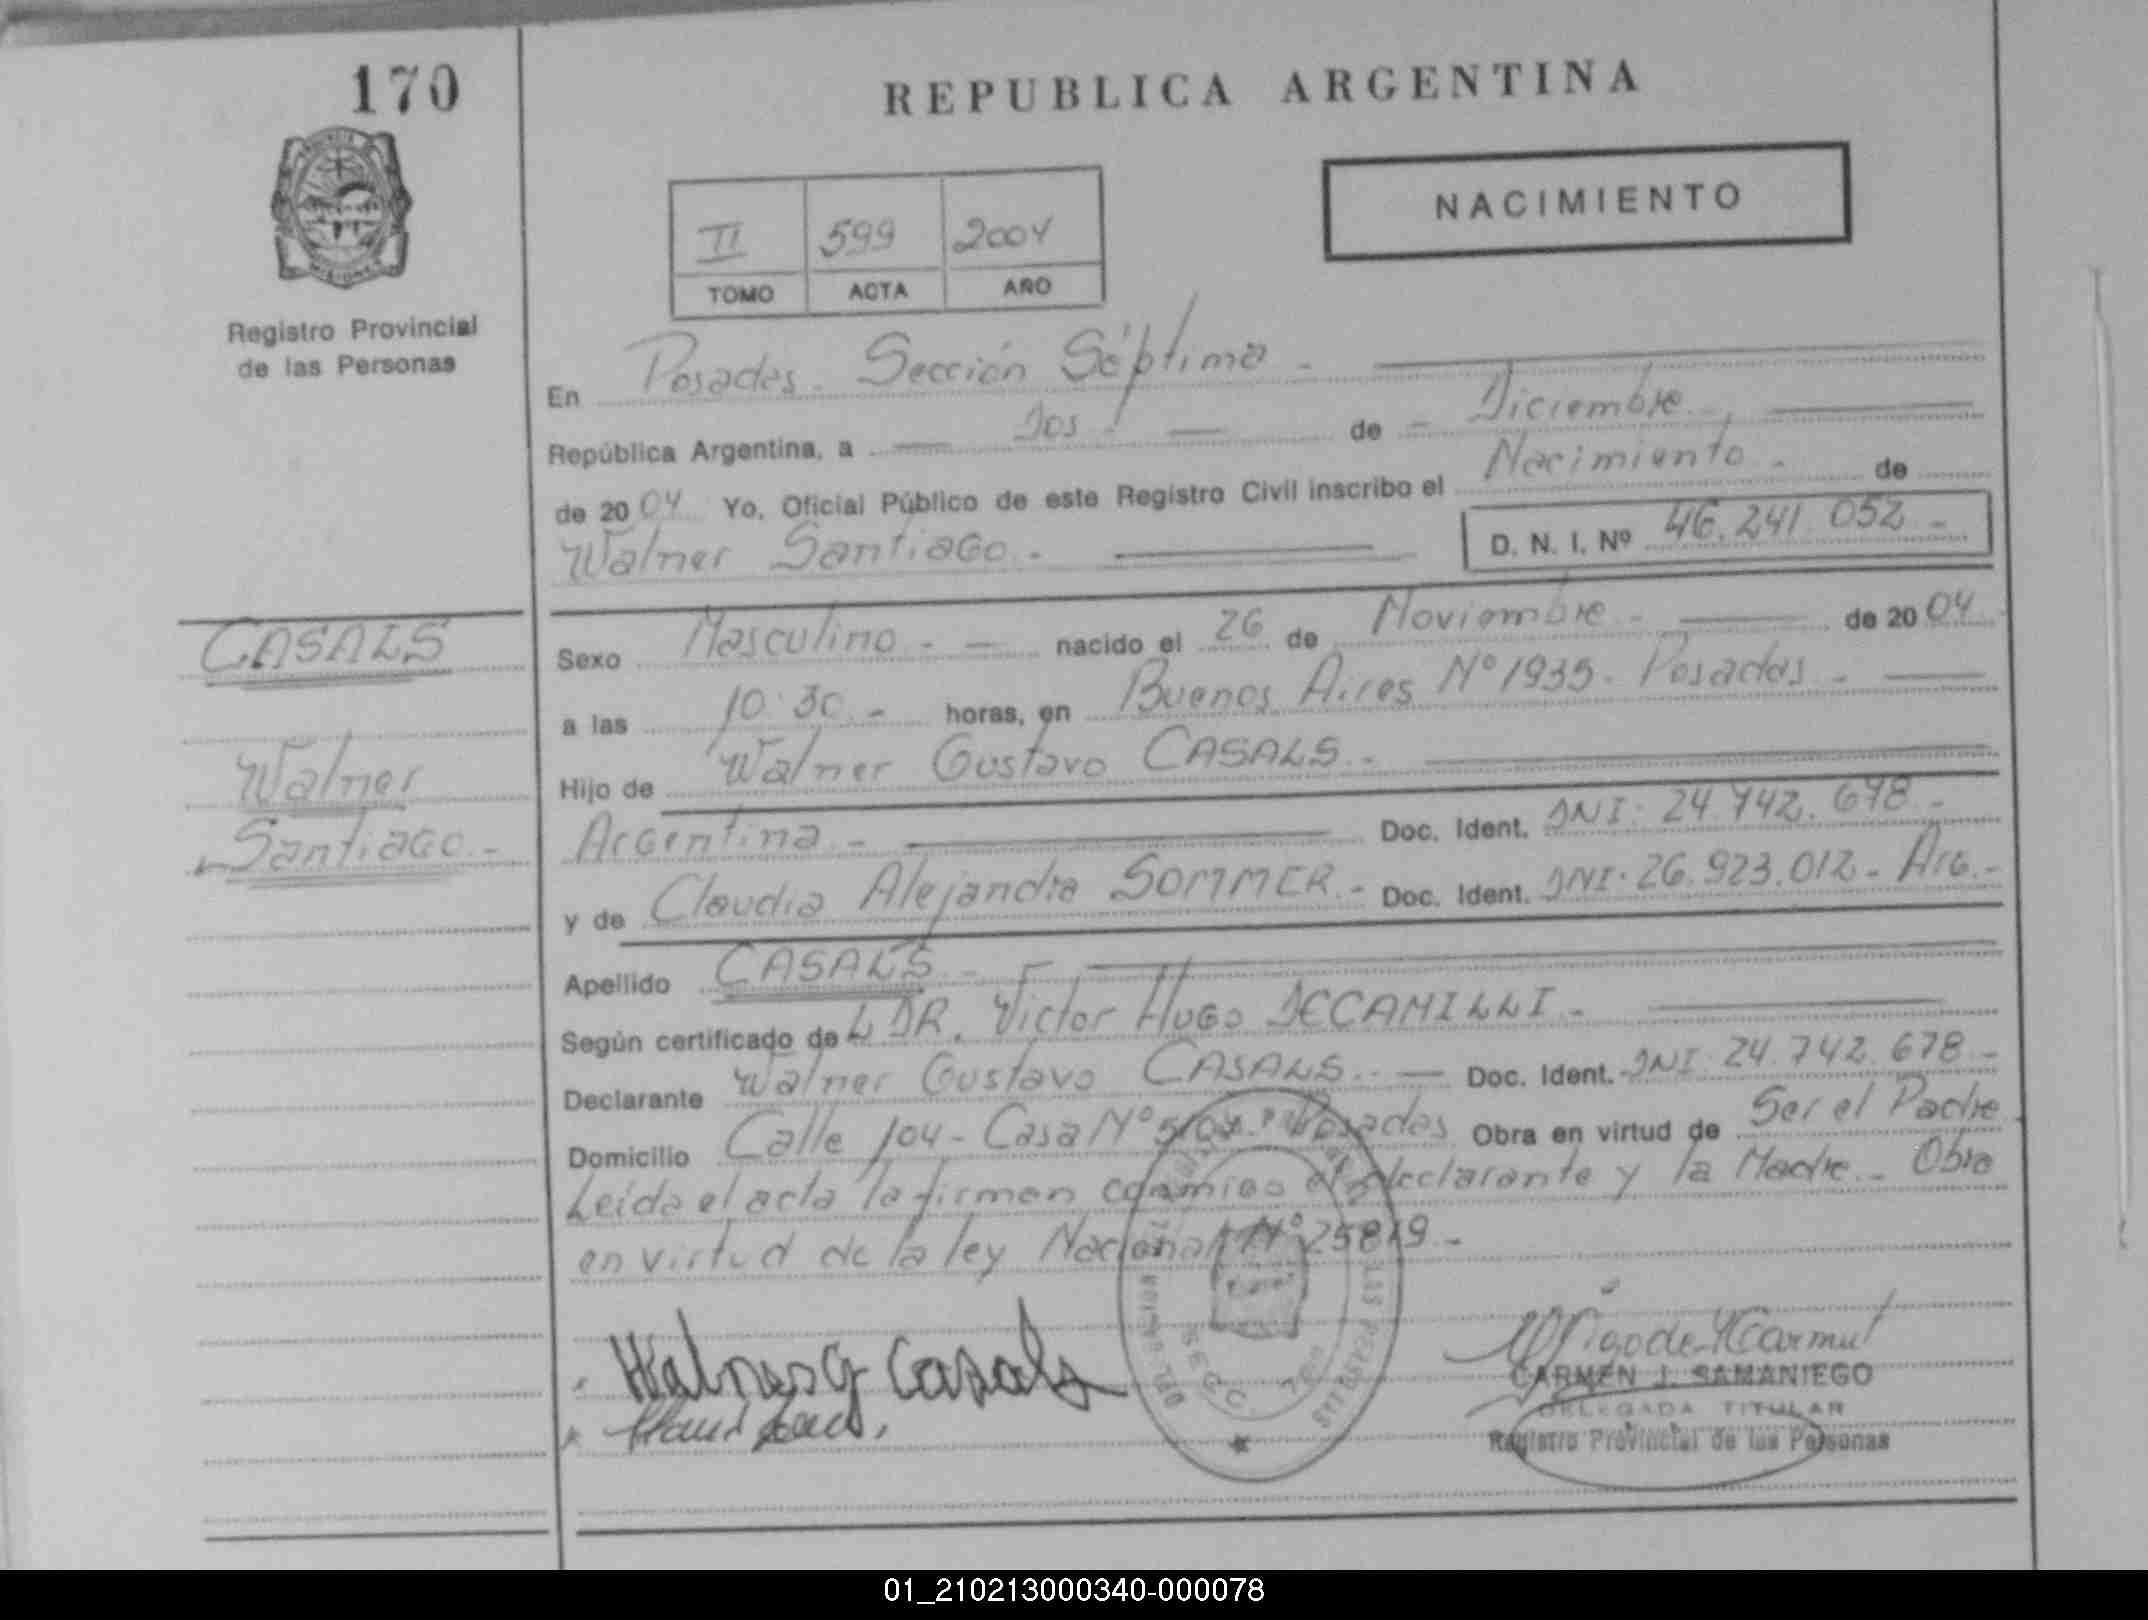 170
REPUBLICA ARGENTINA
NACIMIENTO
II 599 2004
TOMO ACTA AÑO
Registro Provincial
de las Personas
En Posadas. Sección Séptima -
República Argentina, a Dos - de - Diciembre -
de 2004 Yo, Oficial Público de este Registro Civil inscribo el Nacimiento - de
Walner Santiago. - D. N. I. Nº 46.241.052 -
CASALS
Walner
Santiago. -
Sexo Masculino - - nacido el 26 de Noviembre - de 2004
a las 10:30 - horas, en Buenos Aires Nº 1935. Posadas -
Hijo de Walner Gustavo CASALS. -
Argentina. - Doc. Ident. DNI: 24.742.678 -
y de Claudia Alejandra SOMMER. - Doc. Ident. DNI: 26.923.012 - Arg. -
Apellido CASALS -
Según certificado de DR. Victor Hugo DECAMILLI -
Declarante Walner Gustavo CASALS. - Doc. Ident. DNI: 24.742.678 -
Domicilio Calle 104 - Casa Nº Posadas Obra en virtud de Ser el Padre
Leída el acta la firman conmigo el declarante y la Madre. - Obra
en virtud de la ley Nacional Nº 25819 -
Walner G Casals
CARMEN J. SAMANIEGO
DELEGADA TITULAR
Registro Provincial de las Personas
SECC. 7ma
01_210213000340-000078